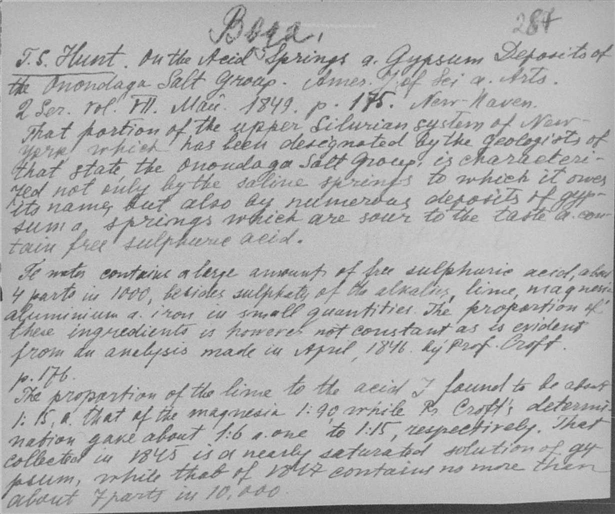 284
T.S. Hunt. On the Acid Springs a. Gypsum Deposits of
the Onondaga Salt Group. Amer. J. of Sci a. Arts.
2 Ser. Vol. VII. 1849. p. 175. New-Haven.
That portion of the upper Silurian system of New-
York which has been designated by the geologists of
that state, the Onondaga Salt Group, is characteri-
zed not only by the saline springs to which it owes
its name, but also by numerous deposits of gyp-
sum a. springs which are sour to the taste a. con
tain free sulphuric acid.
water contains a large amount of free sulphuric acid, about
4 parts in 1000, besides sulphats of the alkalies, lime, magnesia
aluminium a. iron in small quantities. The proportion of
these ingredients is however not constant as is evident
from an analysis made in April, 1846. by Prof. Croft.
p. 176.
The proportion of the lime to the acid I found to be about
1:15, a. that of the magnesia 1:90, while Croft's determi
nation gave about 1:6 a. one to 1:15, respectively. That
collected in 1845 is a nearly saturated solution of gy
psum, while that of 1847 contains no more than
about 7 parts in 10,000.